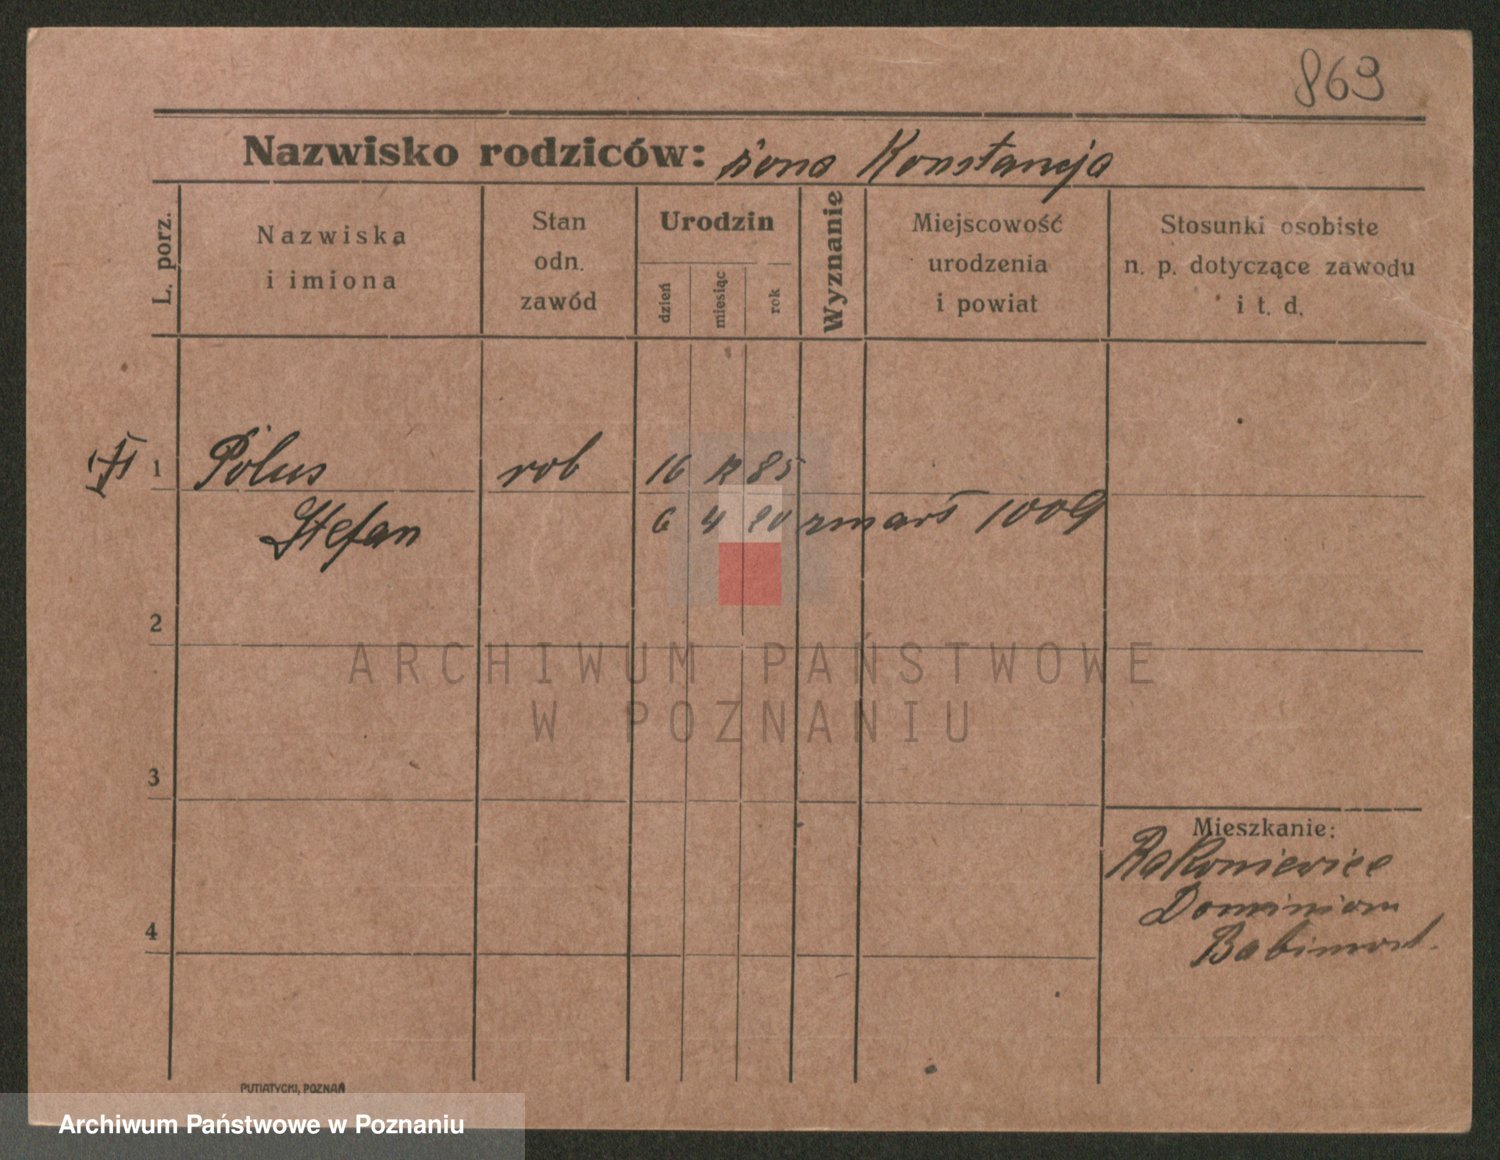 869
Nazwisko rodziców: żona Konstancja
L. porz.
Nazwiska
i imiona
Stan
odn.
zawód
Urodzin
dzień
miesiąc
rok
Wyznanie
Miejscowość
urodzenia
i powiat
Stosunki osobiste
n. p. dotyczące zawodu
i t. d.
1 Polus rob 16 12 85
Stefan 6 4 20 zmarł 1009
2
3
4
Mieszkanie:
Rakoniewice
Dominium
Babimost.
PUTIATYCKI, POZNAŃ
ARCHIWUM PAŃSTWOWE
W POZNANIU
Archiwum Państwowe w Poznaniu